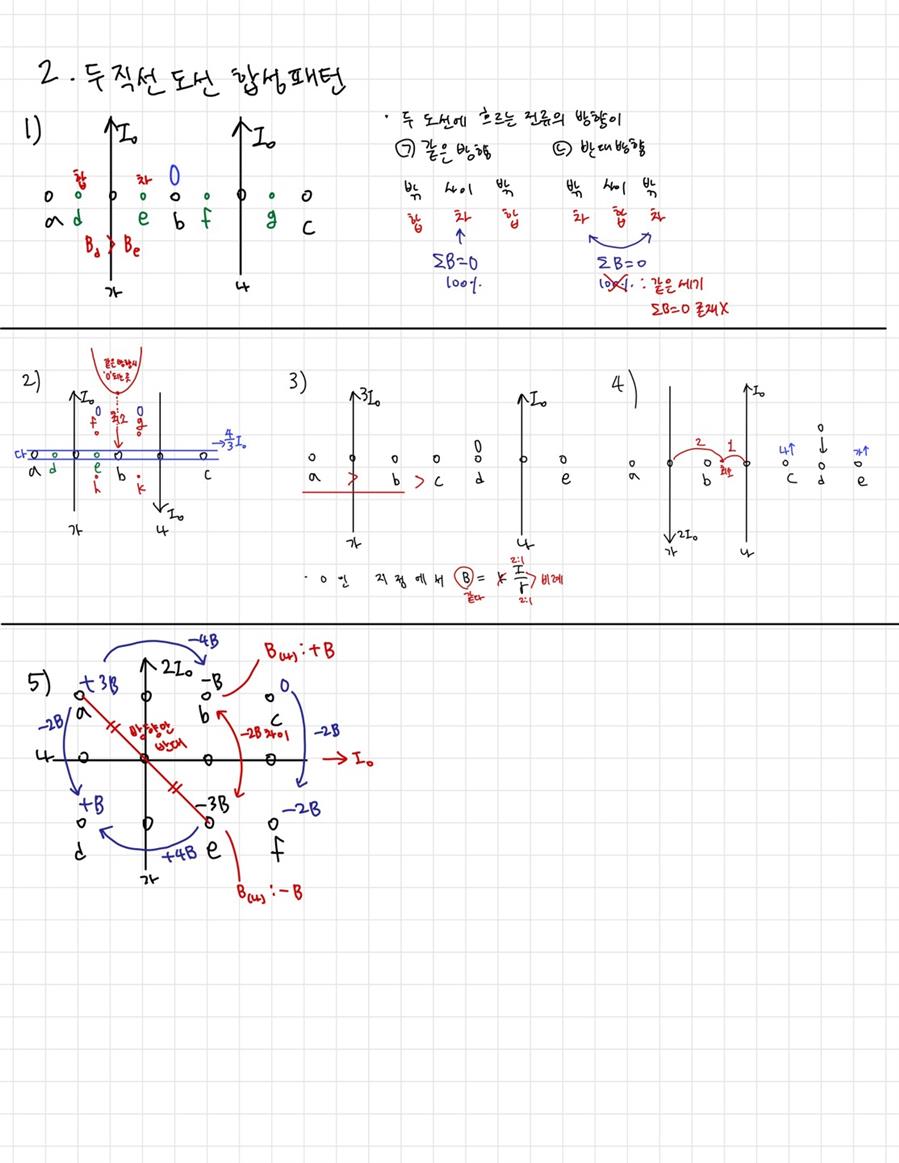 2. 두 직선 도선 합성패턴
1) I₀ I₀
· 두 도선에 흐르는 전류의 방향이
㉠ 같은 방향 ㉡ 반대 방향
합 차 0
밖 사이 밖 밖 사이 밖
a d e b f g c
합 차 합 차 합 차
B_d > B_e
ΣB=0 ΣB=0
100% 100% : 같은 세기
가 나
ΣB=0 존재X
2) 같은 방향시
'0'되는 곳
I₀
0 0
f 최소 g
다 → 4/3 I₀
a d e b c
h k
I₀
가 나
3) 3I₀ I₀
0
a > b > c d e
가 나
4) I₀
2 1 나↑ 0 가↑
a b 최소 c d e
2I₀
가 나
· 0 인 지점에서 B = k I/r 비례
2:1
같다 2:1
5) -4B
+3B 2I₀ -B B(나) : +B
a b c 0
-2B 방향만 반대 -2B 차이 -2B
나 → I₀
+B -3B -2B
d +4B e f
가 B(나) : -B